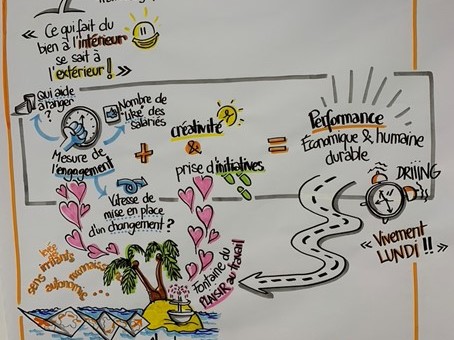 « Ce qui fait du
bien à l'intérieur
se sait à
l'extérieur ! »
Qui aide
à ranger ?
Nombre de
"like" des
salariés
Mesure de
l'engagement
Vitesse de
mise en place
d'un changement ?
+
créativité
&
prise d'initiatives
=
Performance
Économique & humaine
durable
DRIIING
« Vivement
LUNDI !! »
Fontaine du
PLAISIR au travail
sens
irritants
autonomie